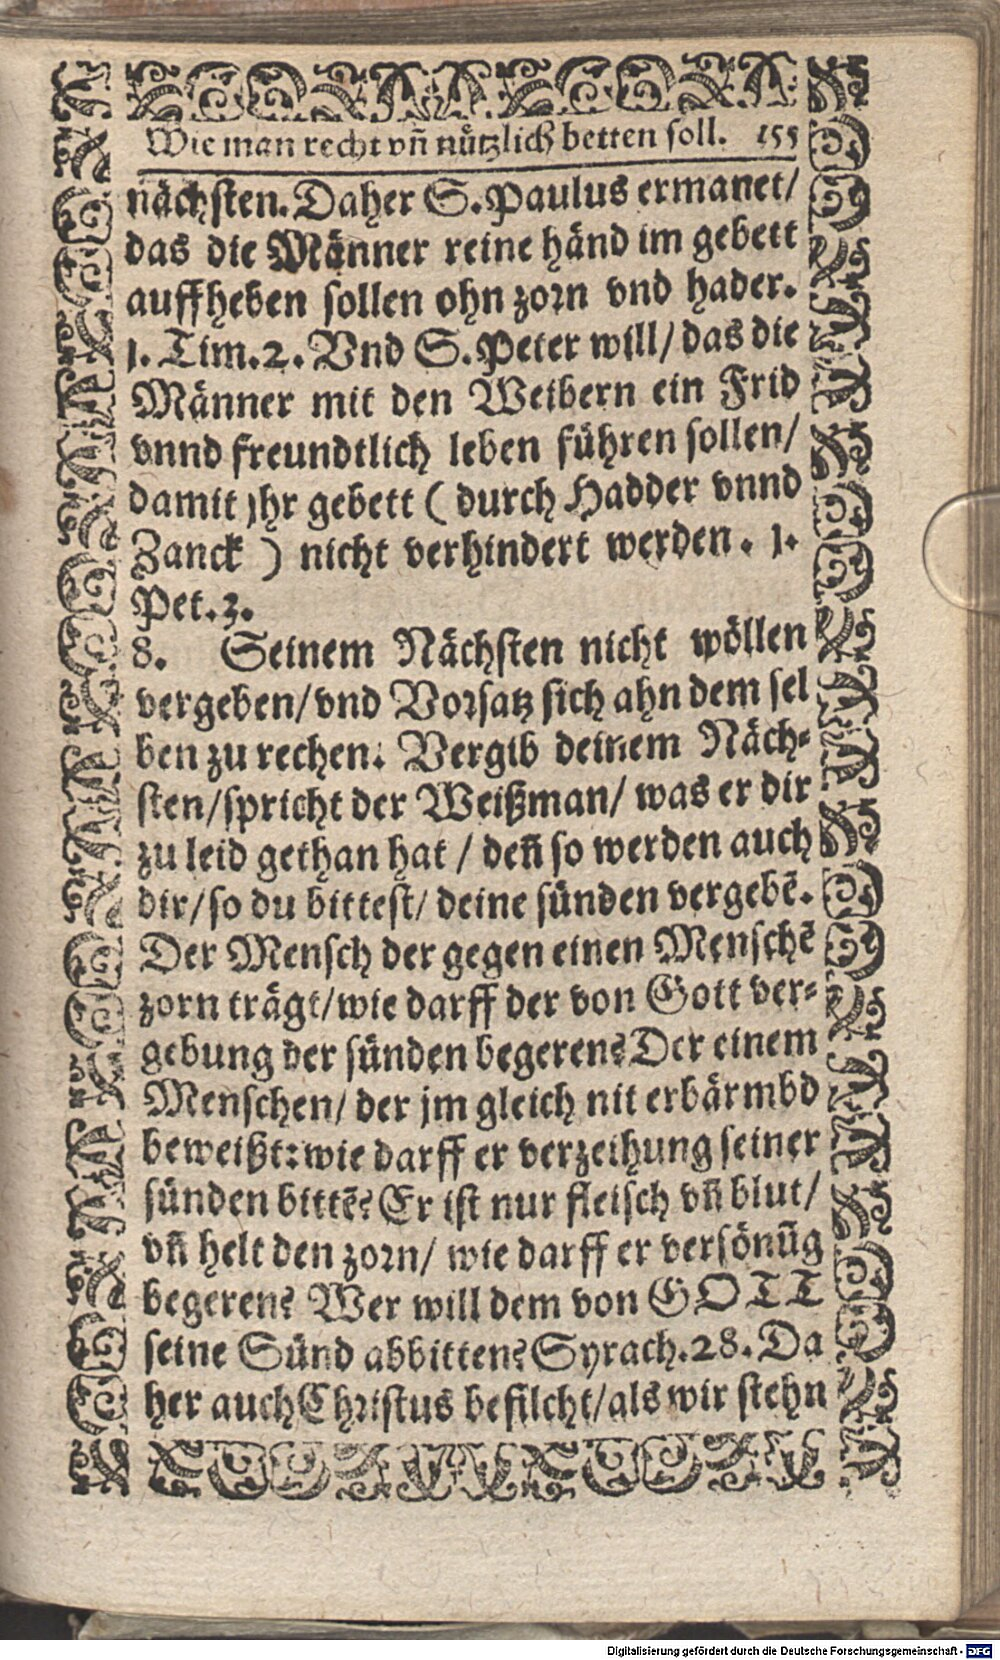 Wie man recht vn̄ nützlich betten soll. 155
nächsten. Daher S. Paulus ermanet/
das die Männer reine händ im gebett
auffheben sollen ohn zorn vnd hader.
1. Tim. 2. Vnd S. Peter will/ das die
Männer mit den Weibern ein Frid
vnnd freundtlich leben führen sollen/
damit jhr gebett ( durch Hadder vnnd
Zanck ) nicht verhindert werden. 1.
Pet. 3.
8. Seinem Nächsten nicht wöllen
vergeben/ vnd Vorsatz sich ahn dem sel
ben zu rechen. Vergib deinem Näch-
sten/ spricht der Weißman/ was er dir
zu leid gethan hat / den̄ so werden auch
dir/ so du bittest/ deine sünden vergebē.
Der Mensch der gegen einen Menschē
zorn trägt/ wie darff der von Gott ver-
gebung der sünden begeren? Der einem
Menschen/ der jm gleich nit erbärmbd
beweißt: wie darff er verzeihung seiner
sünden bittē? Er ist nur fleisch vn̄ blut/
vn̄ helt den zorn/ wie darff er versönūg
begeren? Wer will dem von GOTT
seine Sünd abbitten? Syrach. 28. Da
her auch Christus befilcht/ als wir stehn
Digitalisierung gefördert durch die Deutsche Forschungsgemeinschaft - DFG